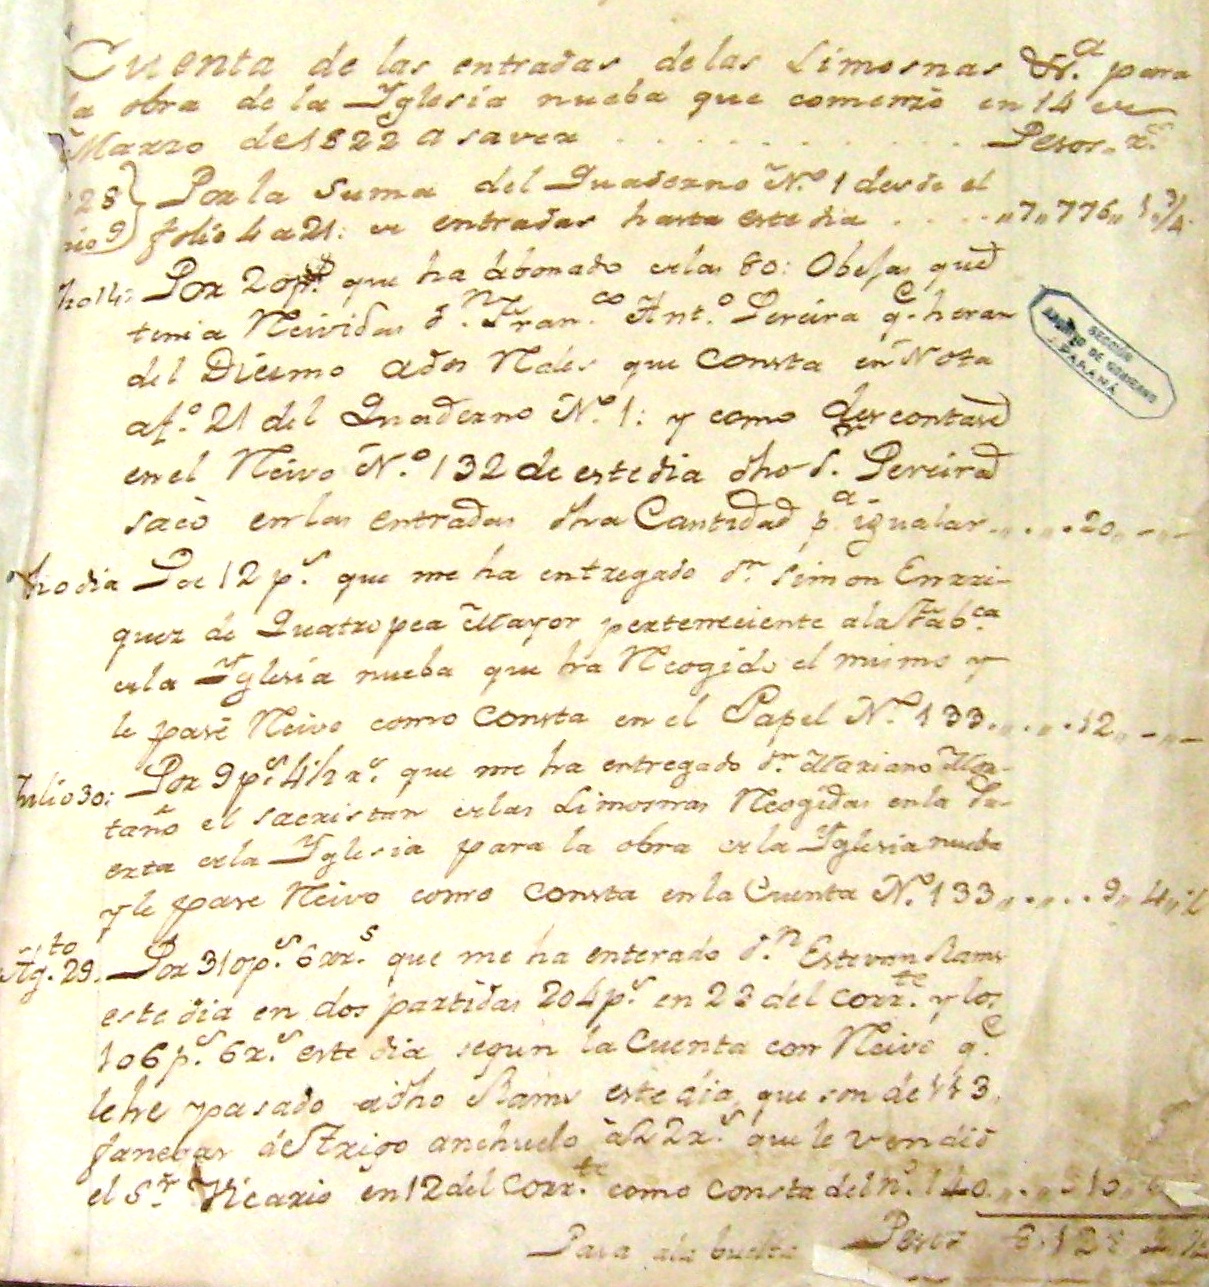 Cuenta de las entradas de las Limosnas &.ª para
la obra de la Yglesia nueba que comenzó en 14 de
Marzo de 1822 a saver . . . . . . . . . . . Pesos,, r.s
1828 } Por la Suma del Quaderno N.º 1 desde el
nio 9 } folio 4 a 21: de entradas hasta este dia . . . . ,,7,,776,, 1,,3/4.
ho 14: Por 20 p.s que ha abonado de las 80: Obejas que
tenia Resividas d.n Fran.co Ant.º Pereira q.e heran
del Diesmo a dos Rales que Consta en Nota
a f.º 21 del Quaderno N.º 1: y como descontase
en el Recivo N.º 132 de este dia dho S.r Pereira
sacò en las entradas dha Cantidad p.a igualar . . . . 20,, - ,, -
dho dia Por 12 p.s que me ha entregado d.n Simon Enrri-
quez de Quatropea Mayor perteneciente a la Fab.ca
de la Yglesia nueba que ha Recogido el mismo y
le pasé Recivo como Consta en el Papel N.º 133 . . . . 12,, - ,, -
Julio 30: Por 9 p.s 4 1/2 r.s que me ha entregado d.n Mariano Mon-
taño el sacristan de las Limosnas Recogidas en la Pu-
erta de la Yglesia para la obra de la Yglesia nueba
y le pase Recivo como Consta en la Cuenta N.º 133 . . . . 9,, 4,, 1/2
Ag.to 29. Por 310 p.s 6 rr.s que me ha enterado d.n Estevan Rams
este dia en dos partidas 204 p.s en 23 del corr.te y los
106 p.s 6 r.s este dia segun la Cuenta con Recivo q.e
le he pasado a dho Rams este dia, que son de 113.
fanegas de Trigo anchuelo à 22 r.s que le vendió
el S.r Vicario en 12 del Corr.te como consta del n.º 140 . . . 310,, 6
Para ala buelta Pesos 8.128
SECCION
ARCHIVO DE GOBIERNO
PARANÁ